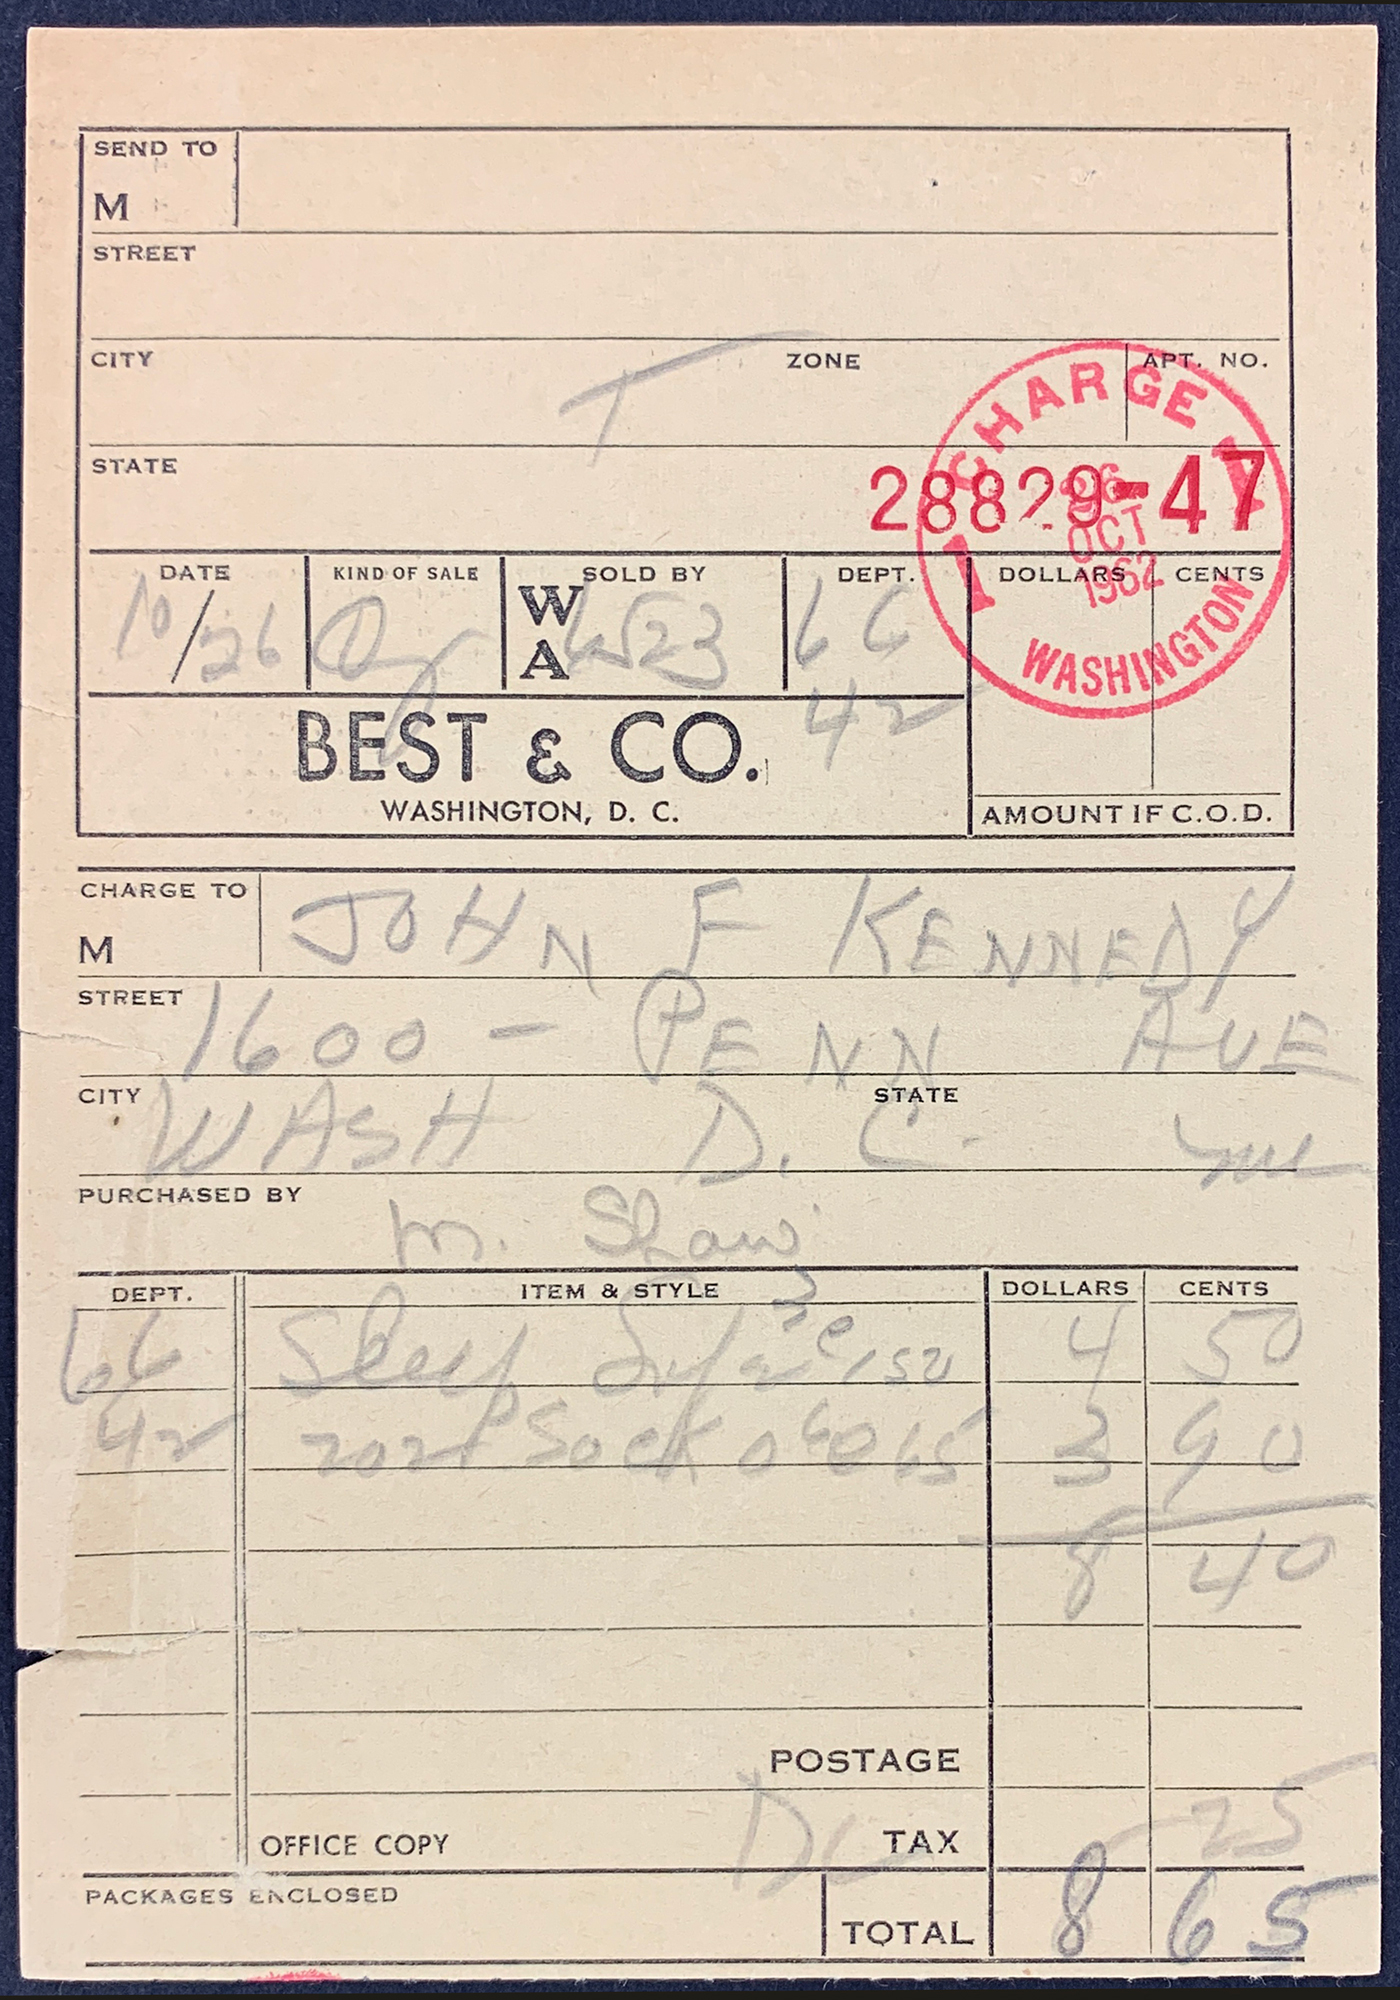 SEND TO
M
STREET
CITY ZONE APT. NO.
T
STATE
28829-47
CHARGE
26
OCT
1962
WASHINGTON
DATE KIND OF SALE SOLD BY DEPT. DOLLARS CENTS
10/26 WA 4523 66
42
BEST & CO.
WASHINGTON, D. C.
AMOUNT IF C.O.D.
CHARGE TO
M JOHN F KENNEDY
STREET 1600 - PENN AVE
CITY WASH D.C. STATE
PURCHASED BY
M. Shaw
DEPT. ITEM & STYLE DOLLARS CENTS
66 Sleep 3 @ 150 4 50
42 2021 Sock 6 @ 65 3 90
8 40
POSTAGE
OFFICE COPY DC TAX 25
PACKAGES ENCLOSED
TOTAL 8 65